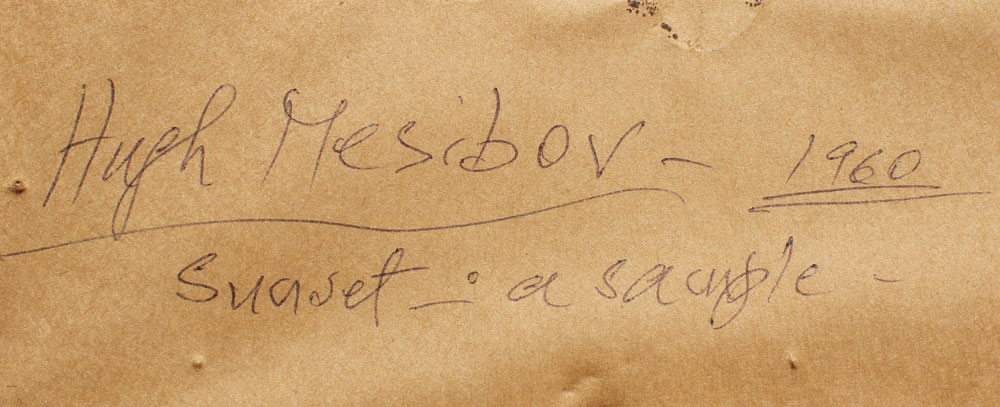 Hugh Mesibov - 1960
Sunset -: a sample -